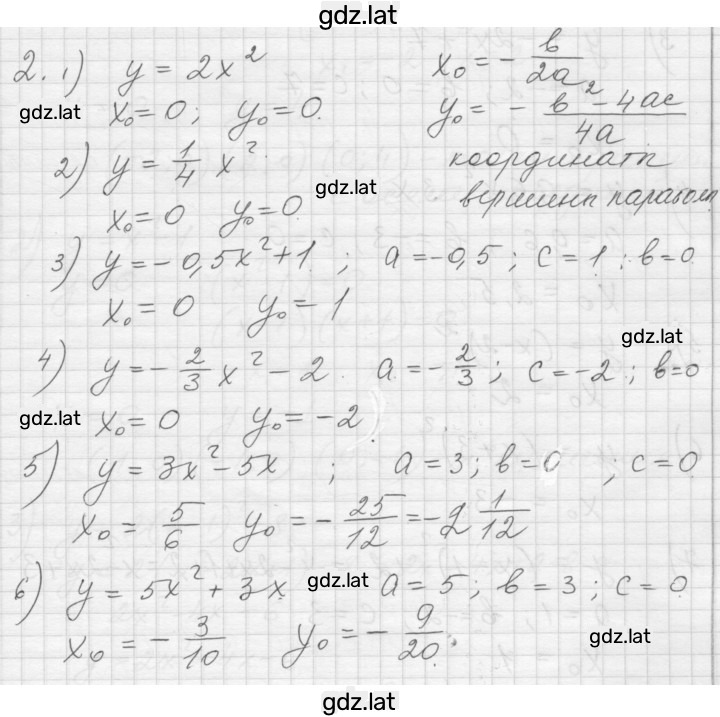 gdz.lat
2. 1) y = 2x²
x₀ = -в/2a
gdz.lat
x₀ = 0; y₀ = 0.
y₀ = - в² - 4ac/4a
2) y = 1/4 x²
координаты
gdz.lat
вершины параболы
x₀ = 0 y₀ = 0.
3) y = -0,5x² + 1 ; a = -0,5 ; c = 1 ; в = 0
x₀ = 0 y₀ = 1
gdz.lat
4) y = -2/3 x² - 2. a = -2/3 ; c = -2 ; в = 0
gdz.lat
x₀ = 0 y₀ = -2.
5) y = 3x² - 5x ; a = 3 ; в = 0 ; c = 0
x₀ = 5/6 y₀ = -25/12 = -2 1/12
6) y = 5x² + 3x. gdz.lat a = 5 ; в = 3 ; c = 0
x₀ = -3/10 y₀ = -9/20.
gdz.lat
gdz.lat